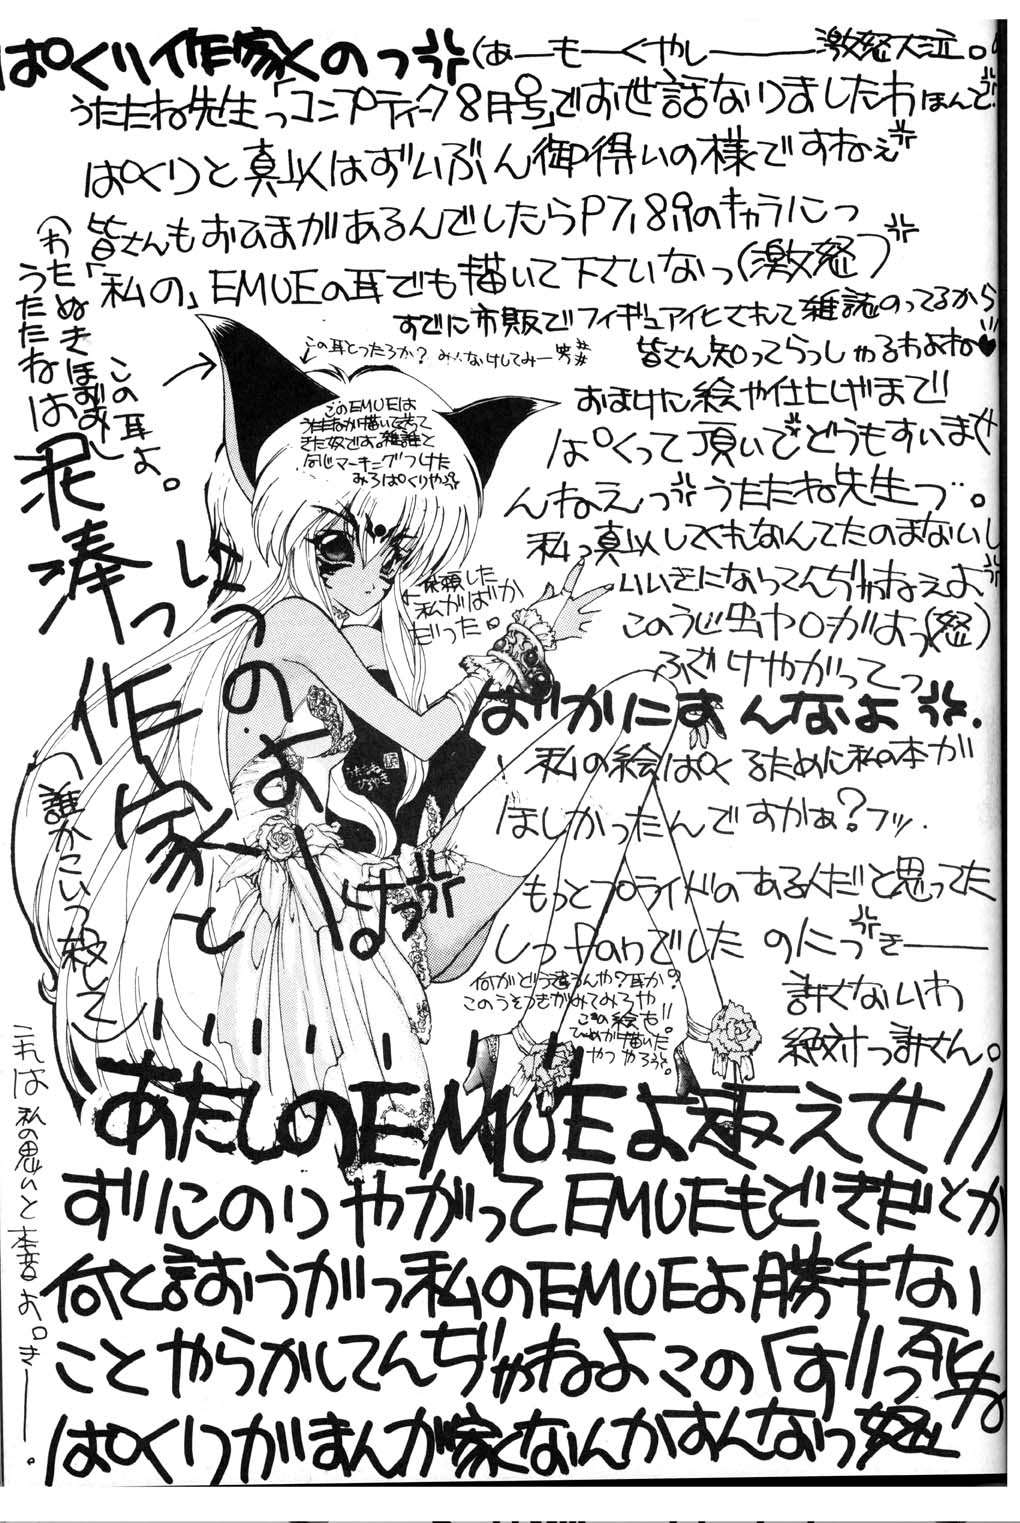 ぱくり作家くのっ
(あーもーくやしーーー激怒大泣。
うたたね先生っ「コンプティーク8月号」でお世話なりましたわほんで
ぱくりと真似はずいぶん御得いの様ですねぇ
皆さんもおひまがあるんでしたらP7,8,9のキャラにっ
「私の」EMUEの耳でも描いて下さいなっ(激怒)
すでに市販でフィギュアイ化されて雑誌のってるから
皆さん知ってらっしゃるわよね♥
おまけた絵や仕上げまで!!
ぱくって頂いてどうもすいませ
んねえっうたたね先生っ…。
私っ真似してくれなんてたのまないし
いいきになってんぢゃねえよ
このうじ虫ヤロがよっ(怒)
ふざけやがってっ
ばかにすんなよ.
私の絵ぱくるために私の本が
ほしかったんですかぁ?フッ.
もっとプライドのある人だと思ってた
しっfanでしたのにっきー
許さないわ
絶対っ許さん。
(わたぬきほづみ)
うたたねは
この耳よ。
泥棒っ作家と
うそのよ
はっ
(誰かこいつ殺して)
この耳とったろか?みんなけしてみー笑
このEMUEは
うたたねが描いて送って
きた奴ですよ雑誌で
同じマーキングつけた
みろぱくりやがっ
←依頼した
私がばか
だった。
うたたね
ひろゆき
何がどう違うんや?耳か?
このうそつきがみてみろや
この絵も!!
ひめが描いた
やつやろぅ。
あたしのEMUEよ返えせ!!
ずにのりやがってEMUEもどきだとか
何と言おうがっ私のEMUEよ勝手ない
ことやらかしてんぢゃねよこの「す!!」っ死ね
ぱくりがまんが家くなんかすんなっ怒
これは私の思いと本音よ。きーーー。